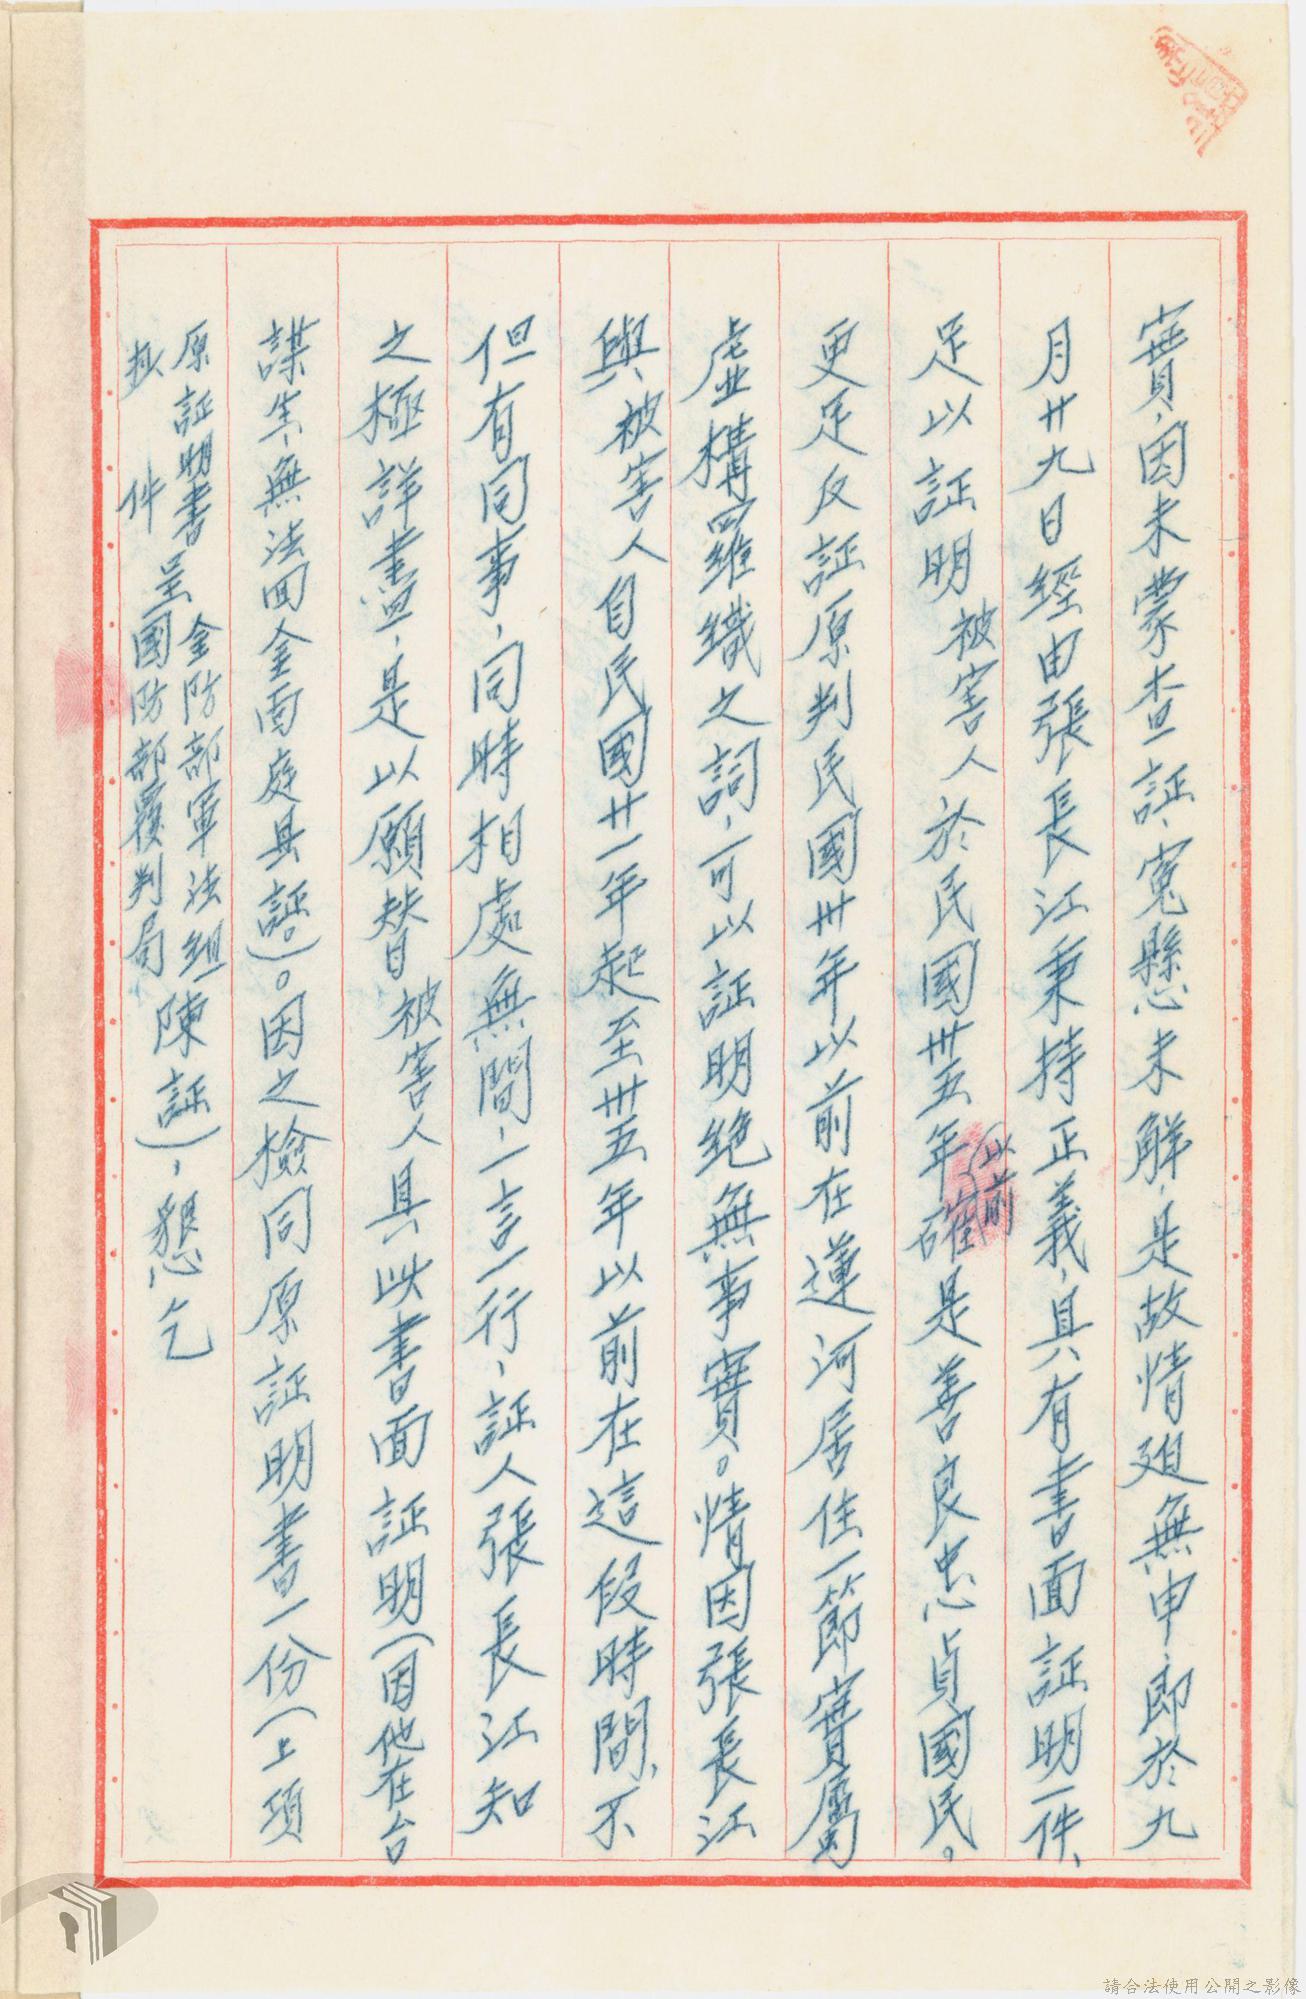 實，因未蒙查証，寃懸未解，是故情廹無申，即於九
月廿九日經由張長江秉持正義，具有書面証明一件、
足以証明被害人於民國卅五年(以前)確是善良忠貞國民。
更足反証原判民國卅年以前在蓮河居住一節實屬
虛構羅織之詞，可以証明絕無事實。情因張長江
與被害人自民國廿一年起至卅五年以前在這段時間，不
但有同事，同時相處無間，一言一行，証人張長江知
之極詳盡，是以願替被害人具以書面証明(因他在台
謀生，無法回金面庭具証。)。因之檢同原証明書一份(上項
原証明書
件呈金防部軍法組
國防部覆判局陳証)，懇乞
請合法使用公開之影像